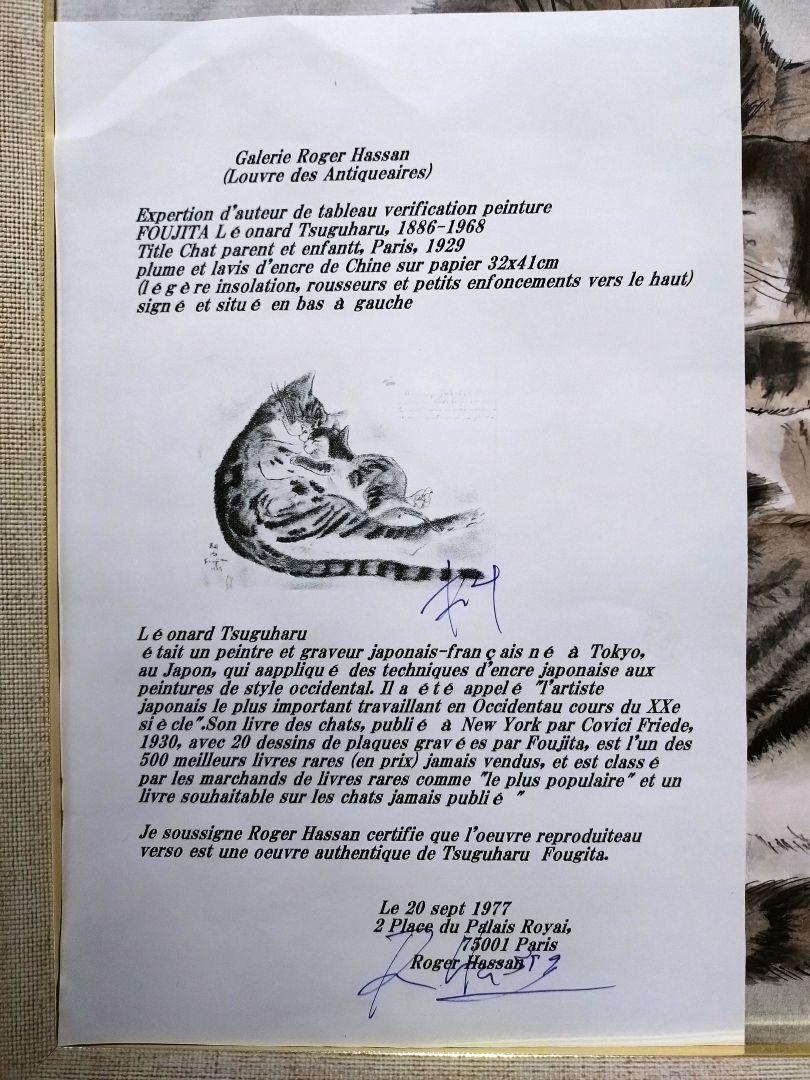 Galerie Roger Hassan
(Louvre des Antiqueaires)
Expertion d'auteur de tableau verification peinture
FOUJITA Lé onard Tsuguharu, 1886-1968
Title Chat parent et enfantt, Paris, 1929
plume et lavis d'encre de Chine sur papier 32x41cm
(lé gè re insolation, rousseurs et petits enfoncements vers le haut)
signé et situé en bas à gauche
Lé onard Tsuguharu
é tait un peintre et graveur japonais-franç ais né à Tokyo,
au Japon, qui aappliqué des techniques d'encre japonaise aux
peintures de style occidental. Il a é té appelé "l'artiste
japonais le plus important travaillant en Occidentau cours du XXe
siè cle".Son livre des chats, publié à New York par Covici Friede,
1930, avec 20 dessins de plaques gravé es par Foujita, est l'un des
500 meilleurs livres rares (en prix) jamais vendus, et est classé
par les marchands de livres rares comme "le plus populaire" et un
livre souhaitable sur les chats jamais publié "
Je soussigne Roger Hassan certifie que l'oeuvre reproduiteau
verso est une oeuvre authentique de Tsuguharu Fougita.
Le 20 sept 1977
2 Place du Palais Royai,
75001 Paris
Roger Hassan